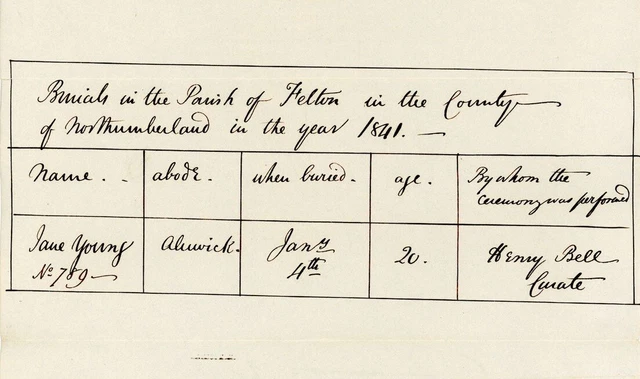 Burials in the Parish of Felton in the County
of Northumberland in the year 1841. —
Name. . -
abode.
when buried.
age.
By whom the
Ceremony was performed
Jane Young
No. 789 —
Alnwick.
Jany
4th
20.
Henry Bell
Curate